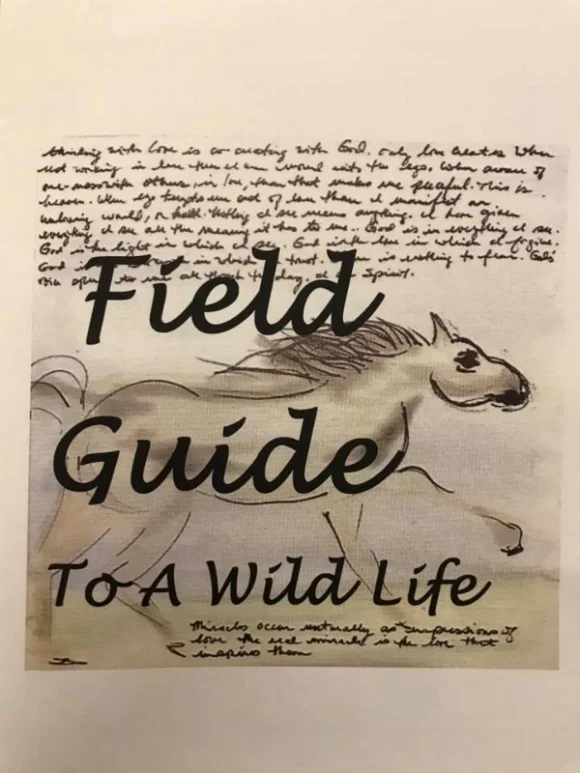 thinking with love is co-creating with God. only love creates When
not working in love then I am world into the ego. When aware of
one-ness with others, in love, than that makes me peaceful. This is
heaven. When ego tempts me out of love than I manifest an
unloving world, or hell. Nothing I see means anything. I have given
everything I see all the meaning it has to me. God is in everything I see.
God is the light in which I see. God is the love in which I forgive.
God is in which I trust. is nothing to fear. God's
to me all day. Spirit.
Field
Guide
To A Wild Life
Miracles occur naturally as expressions of
love the real miracle is the love that
inspires them